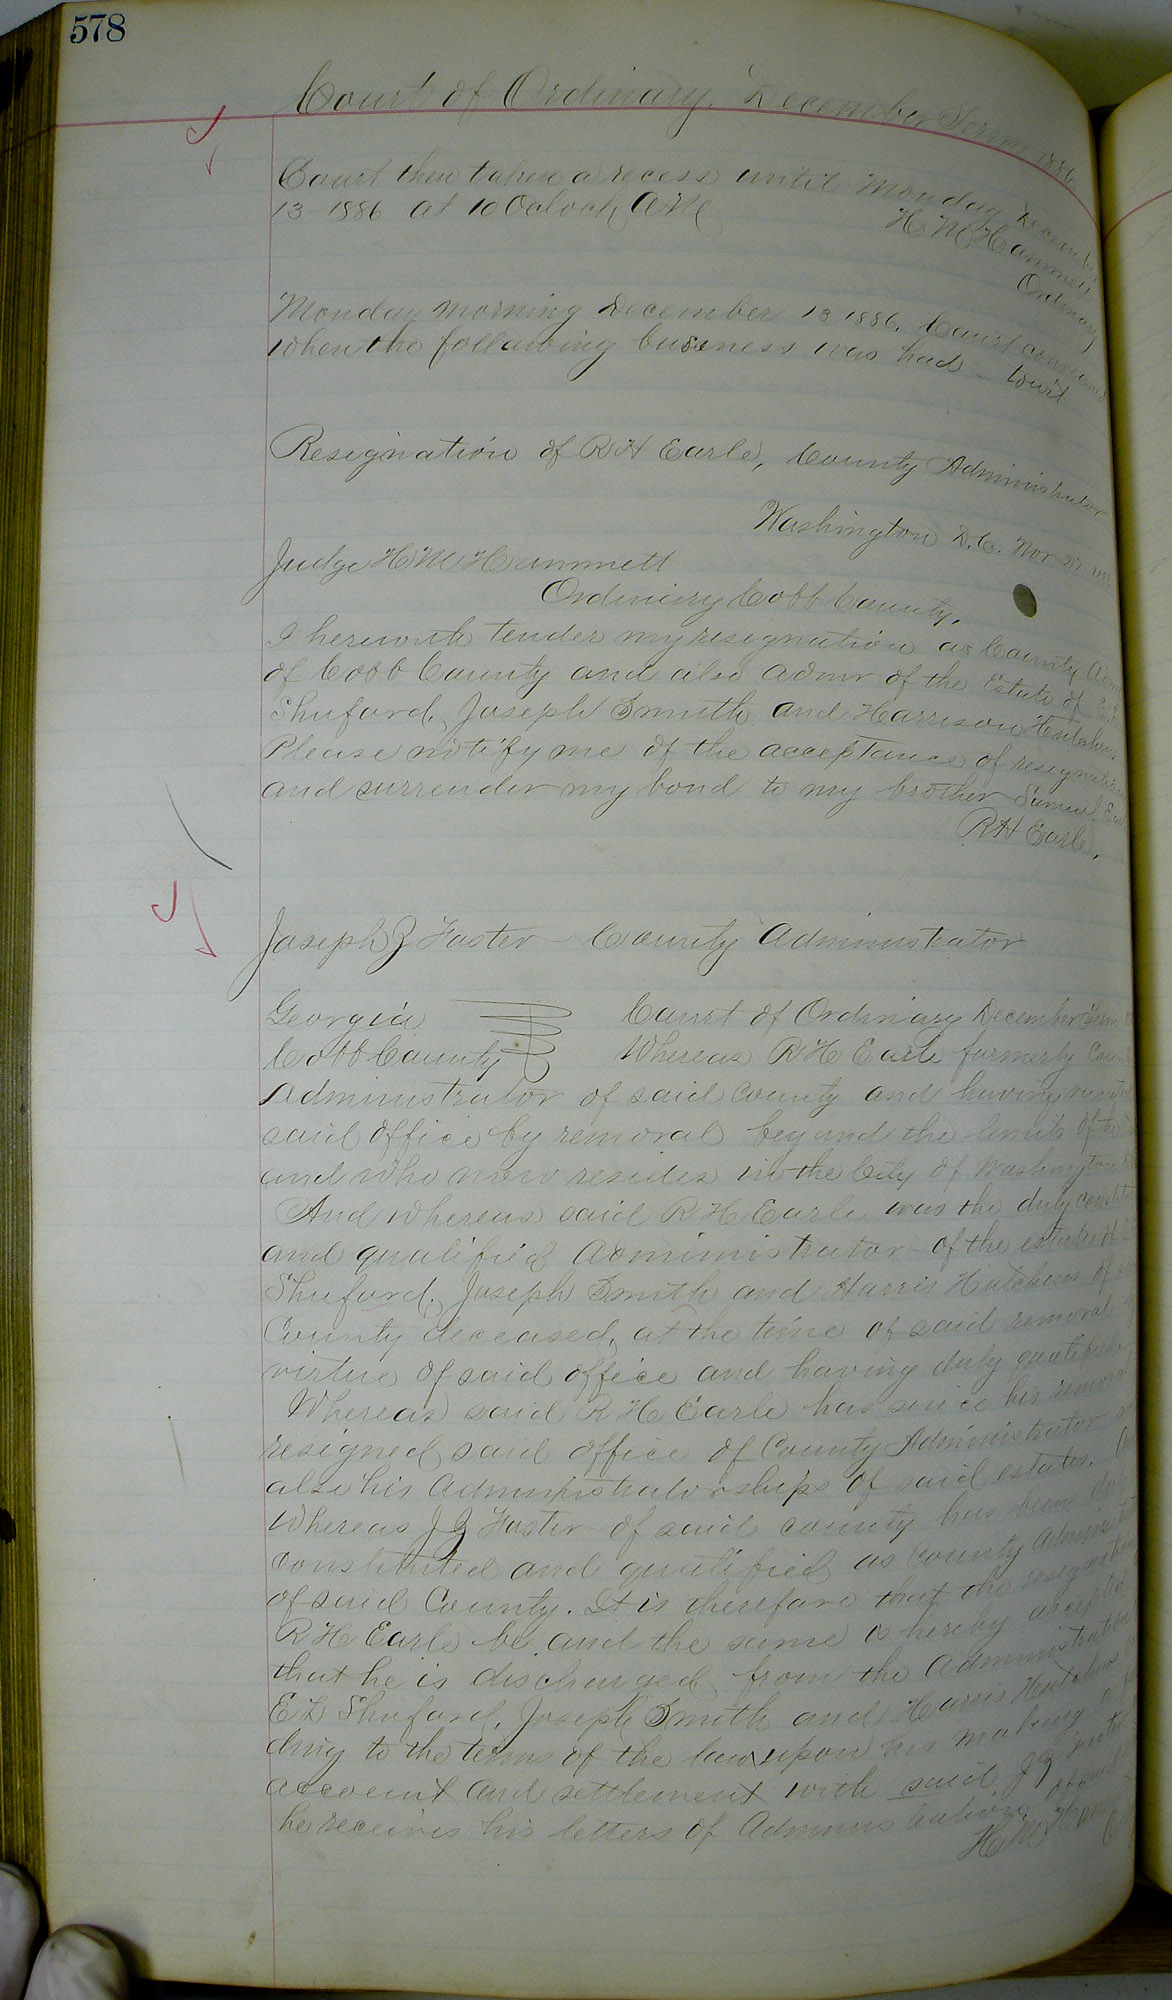 578
Court of Ordinary, December Term 1886
Court then taken a recess until Monday December
13-1886 at 10 Oclock AM
H M Hammett
Ordinary
Monday morning December 13 1886. Court convened
when the following business was had - towit
Resignation of R H Earle, County Administrator
Washington D.C. Nov 27
Judge H M Hammett
Ordinary Cobb County,
I herewith tender my resignation as County
of Cobb County and also admr of the Estate of
Shuford, Joseph Smith and Harrison Hutchens
Please notify me of the acceptance of resignation
and surrender my bond to my brother Samuel
R H Earle,
Joseph Z Foster County Administrator
Georgia Court of Ordinary December Term
Cobb County Whereas R H Earle formerly
Administrator of said County and having
said office by removal beyond the limits of the
and who now resides in the City of Washington
And whereas said R H Earle was the duly
and qualified Administrator of the estates of
Shuford, Joseph Smith and Harris Hutchens of
County deceased, at the time of said removal
virtue of said office and having duly qualified
Whereas said R H Earle has since his removal
resigned said office of County Administrator
also his Administratorships of said estates.
Whereas J Z Foster of said county has been
constituted and qualified as County
of said County. It is therefore that the resignation
R H Earle be and the same is hereby accepted
that he is discharged from the Administration
E L Shuford, Joseph Smith and Harris Hutchens
ding to the terms of the law upon his making a
account and settlement with said J Z
he receives his letters of Administration of said
H M